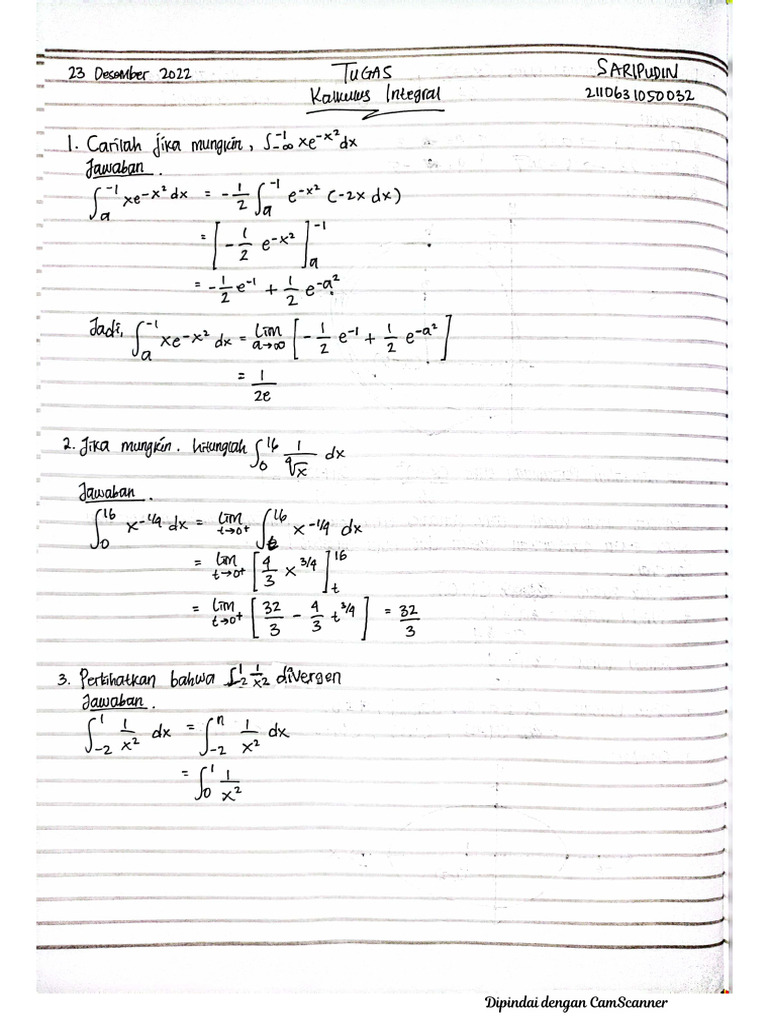 23 Desember 2022 TUGAS SARIPUDIN
Kalkulus Integral 2110631050032
1. Carilah jika mungkin, ∫_{-∞}^{-1} xe^{-x²}dx
Jawaban.
∫_a^{-1} xe^{-x²} dx = -1/2 ∫_a^{-1} e^{-x²} (-2x dx)
= [-1/2 e^{-x²}]_a^{-1}
= -1/2 e^{-1} + 1/2 e^{-a²}
Jadi, ∫_a^{-1} xe^{-x²} dx = lim_{a→∞} [-1/2 e^{-1} + 1/2 e^{-a²}]
= 1/2e
2. Jika mungkin. hitunglah ∫_0^{16} 1/⁴√x dx
Jawaban.
∫_0^{16} x^{-1/4} dx = lim_{t→0+} ∫_t^{16} x^{-1/4} dx
= lim_{t→0+} [4/3 x^{3/4}]_t^{16}
= lim_{t→0+} [32/3 - 4/3 t^{3/4}] = 32/3
3. Perlihatkan bahwa ∫_{-2}^1 1/x² divergen
Jawaban.
∫_{-2}^1 1/x² dx = ∫_{-2}^n 1/x² dx
= ∫_0^1 1/x²
Dipindai dengan CamScanner